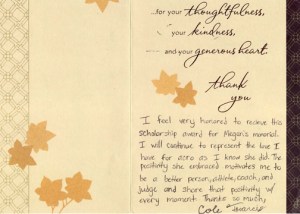 ...for your thoughtfulness,
...your kindness,
...and your generous heart.
thank
you
I feel very honored to receive this
scholarship award for Megan's memorial.
I will continue to represent the love I
have for acro as I know she did. The
positivity she embraced motivates me to
be a better person, athlete, coach, and
judge and share that positivity w/
every moment. Thanks so much,
Cole